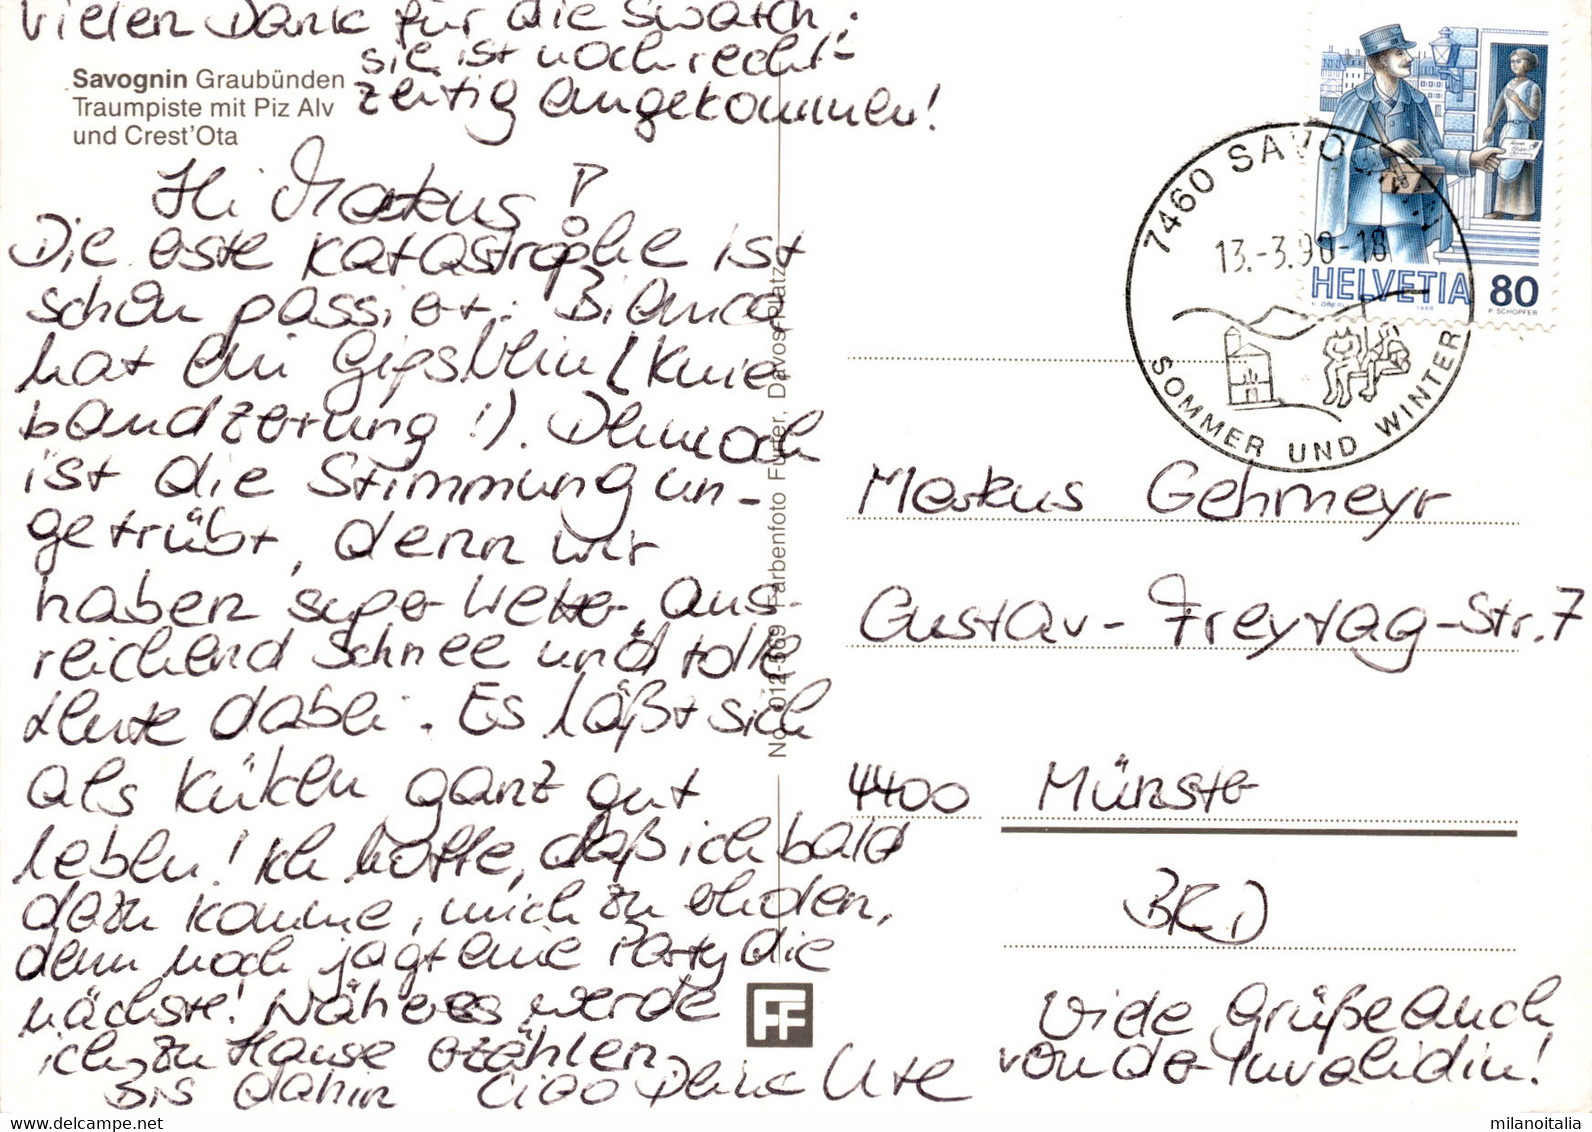 Vielen Dank für die Swatch:
sie ist noch recht-
zeitig angekommen!
Savognin Graubünden
Traumpiste mit Piz Alv
und Crest'Ota
Hi Markus!
Die erste Katastrophe ist
schon passiert: Bianca
hat ein Gipsbein (Knie
bandzerrung!). Dennoch
ist die Stimmung un-
getrübt, denn wir
haben super Wetter, aus-
reichend Schnee und tolle
Leute dabei. Es läßt sich
als Küken ganz gut
leben! Ich hoffe, daß ich bald
dazu komme, mich zu erholen,
denn noch jagt eine Party die
nächste! Näheres werde
ich zu Hause erzählen
Bis dahin Ciao Deine Ute
No. 012-569 Farbenfoto Furter, Davos-Platz
FF
7460 SAVOGNIN
13.-3.90-18
SOMMER UND WINTER
HELVETIA 80
P. SCHOPFER
Markus Gehmeyr
Gustav-Freytag-Str. 7
4400 Münster
BRD
Viele Grüße auch
von der Invalidin!
milanoitalia